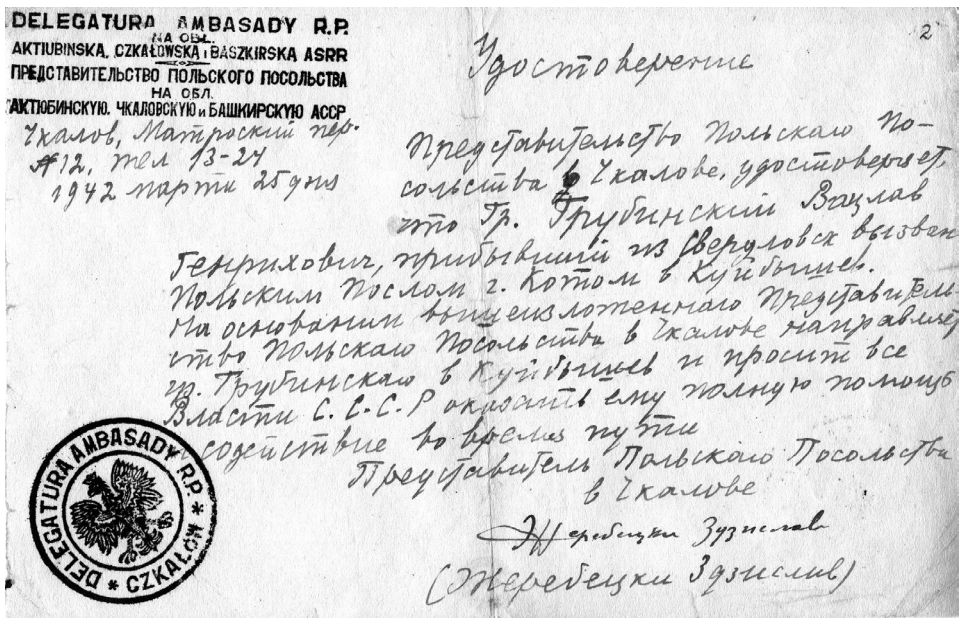 DELEGATURA AMBASADY R.P.
NA OBŁ.
AKTIUBIŃSKA, CZKAŁOWSKĄ i BASZKIRSKA ASRR
ПРЕДСТАВИТЕЛЬСТВО ПОЛЬСКОГО ПОСОЛЬСТВА
НА ОБЛ.
АКТЮБИНСКУЮ, ЧКАЛОВСКУЮ и БАШКИРСКУЮ АССР
Чкалов, Матроский пер.
#12, тел 13-24
1942 марта 25 дня
2
Удостоверение
Представительство Польскаго По-
сольства в Чкалове, удостоверяет,
что Гр. Грубинский Вацлав
Генрихович, прибывший из Свердловск вызван
Польским Послом г. Котом в Куйбышев.
На основании вышеизложеннаго Представитель-
ство Польскаго Посольства в Чкалове направляет
гр. Грубинскаго в Куйбышев и просит все
Власти С.С.С.Р оказать ему полную помощь
содействие во время пути
Представитель Польскаго Посольства
в Чкалове
Жеребецки Здзислав
(Жеребецки Здзислав)
DELEGATURA AMBASADY R.P. * CZKAŁÓW *